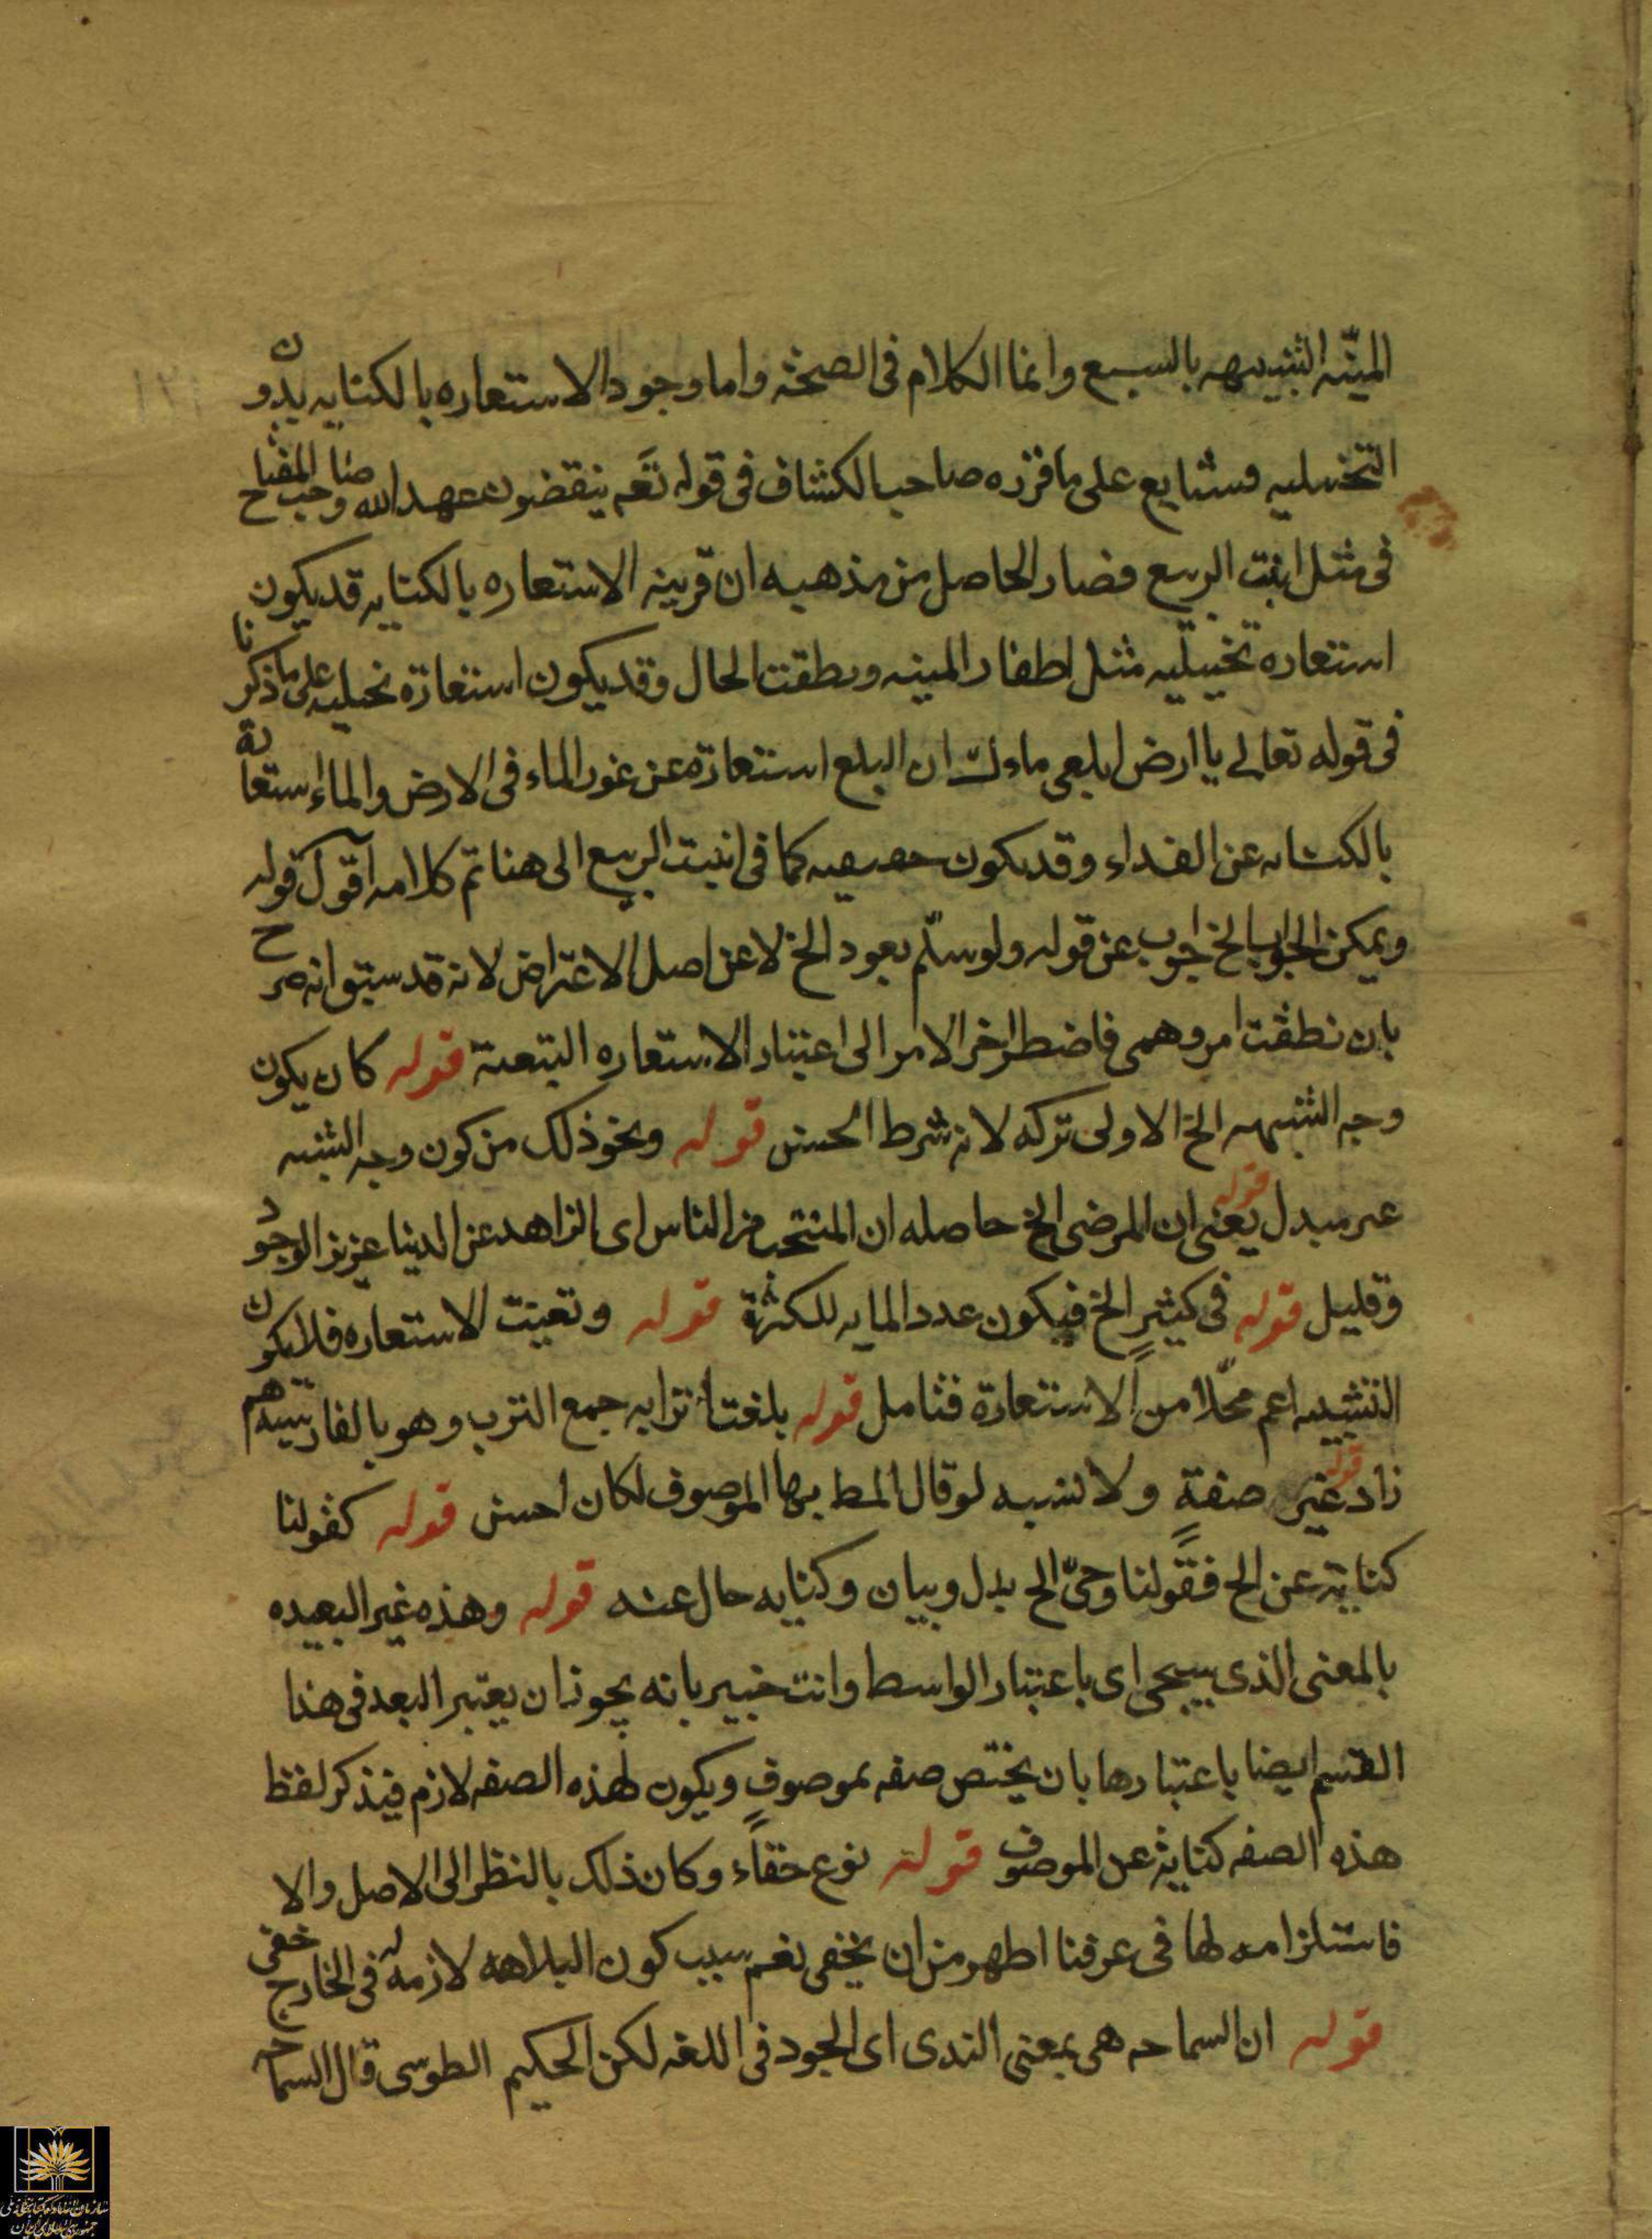 المنيّه الشبيهه بالسبع وانما الكلام فى الصحّة واما وجود الاستعاره بالكنايه بدون
التخييليه فشايع على ما قرّره صاحب الكشاف فى قوله تعَه ينقضون عهد الله وصاحب المفتاح
فى مثل انبت الربيع فصار الحاصل من مذهبه ان قرينه الاستعاره بالكنايه قد يكون
استعاره تخييليه مثل اظفار المنيه ونطقت الحال وقد يكون استعارة تخييليه على ما ذكرنا
فى قوله تعالى يا ارض ابلعى ماءك ان البلع استعارة عن غور الماء فى الارض والماء استعارة
بالكنايه عن الغذاء وقد يكون حقيقيه كما فى انبت الربيع الى هنا تم كلامه اقول قوله
ويمكن الجواب الخ جواب عن قوله ولو سلّم يعود الخ لا عن اصل الاعتراض لانه قد سبق انه صرح
بان نطقت امر وهمى فاضطر اخر الامر الى اعتبار الاستعاره التبعية قوله كان يكون
وجه الشبه الخ الاولى تركه لانه شرط الحسن قوله ونحو ذلك من كون وجه الشبه
غير مبدل قوله يعنى ان المرضى الخ حاصله ان المنتخب من الناس اى الزاهد عن الدنيا عزيز الوجود
وقليل قوله فى كثيرٍ الخ فيكون عدد المايه للكثرة قوله وتعينت الاستعاره فلا يكون
التشبيه اعم محلّا من الاستعارة فتامل قوله بلغت اترابه جمع الترب وهو بالفارسيه هم
زاد قوله غير صفةٍ ولا نسبه لو قال المط بها الموصوف لكان احسن قوله كقولنا
كناية عن الخ فقولنا وحىّ الخ بدل وبيان وكنايه حال عنه قوله وهذه غير البعيده
بالمعنى الذى سيجى اى باعتبار الواسط وانت خبير بانه يجوز ان يعتبر البعد فى هذا
القسم ايضا باعتبارها بان يختص صفه بموصوفٍ ويكون لهذه الصفه لازم فيذكر لفظ
هذه الصفه كناية عن الموصوف قوله نوع خفاًء وكان ذلك بالنظر الى الاصل والا
فاستلزامه لها فى عرفنا اظهر من ان يخفى نعم سبب كون البلاهه لازمه له فى الخارج خفى
قوله ان السماحه هى بمعنى الندى اى الجود فى اللغه لكن الحكيم الطوسى قال السماحه